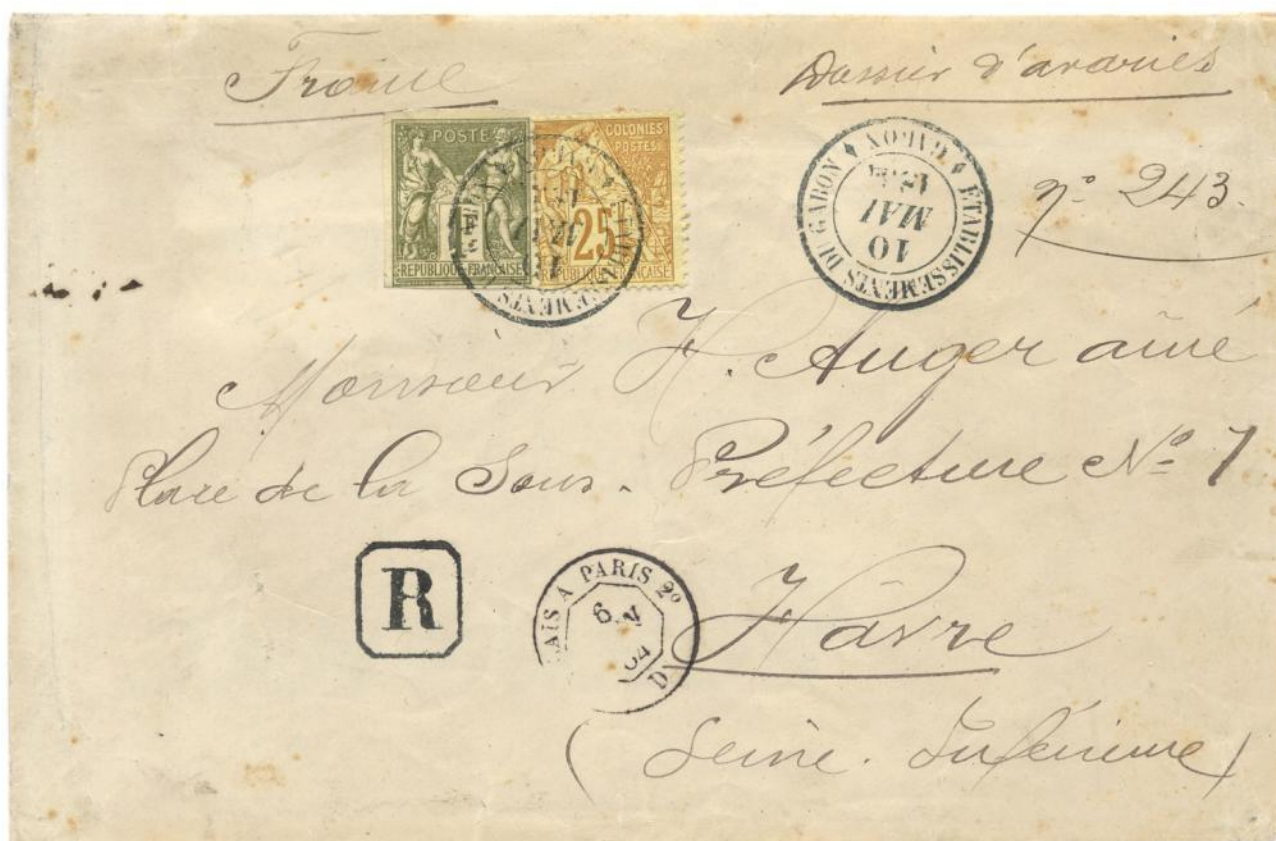 France
Dossier d'avaries
n° 243.
POSTE
1
REPUBLIQUE FRANÇAISE
COLONIES
POSTES
25
REPUBLIQUE FRANÇAISE
ÉTABLISSEMENTS DU GABON ♦ GABON ♦
10
MAI
Monsieur H. Auger aîné
Place de la Sous-Préfecture N° 7
R
AIS A PARIS 2°
6
84
D
Hâvre
(Seine-Inférieure)